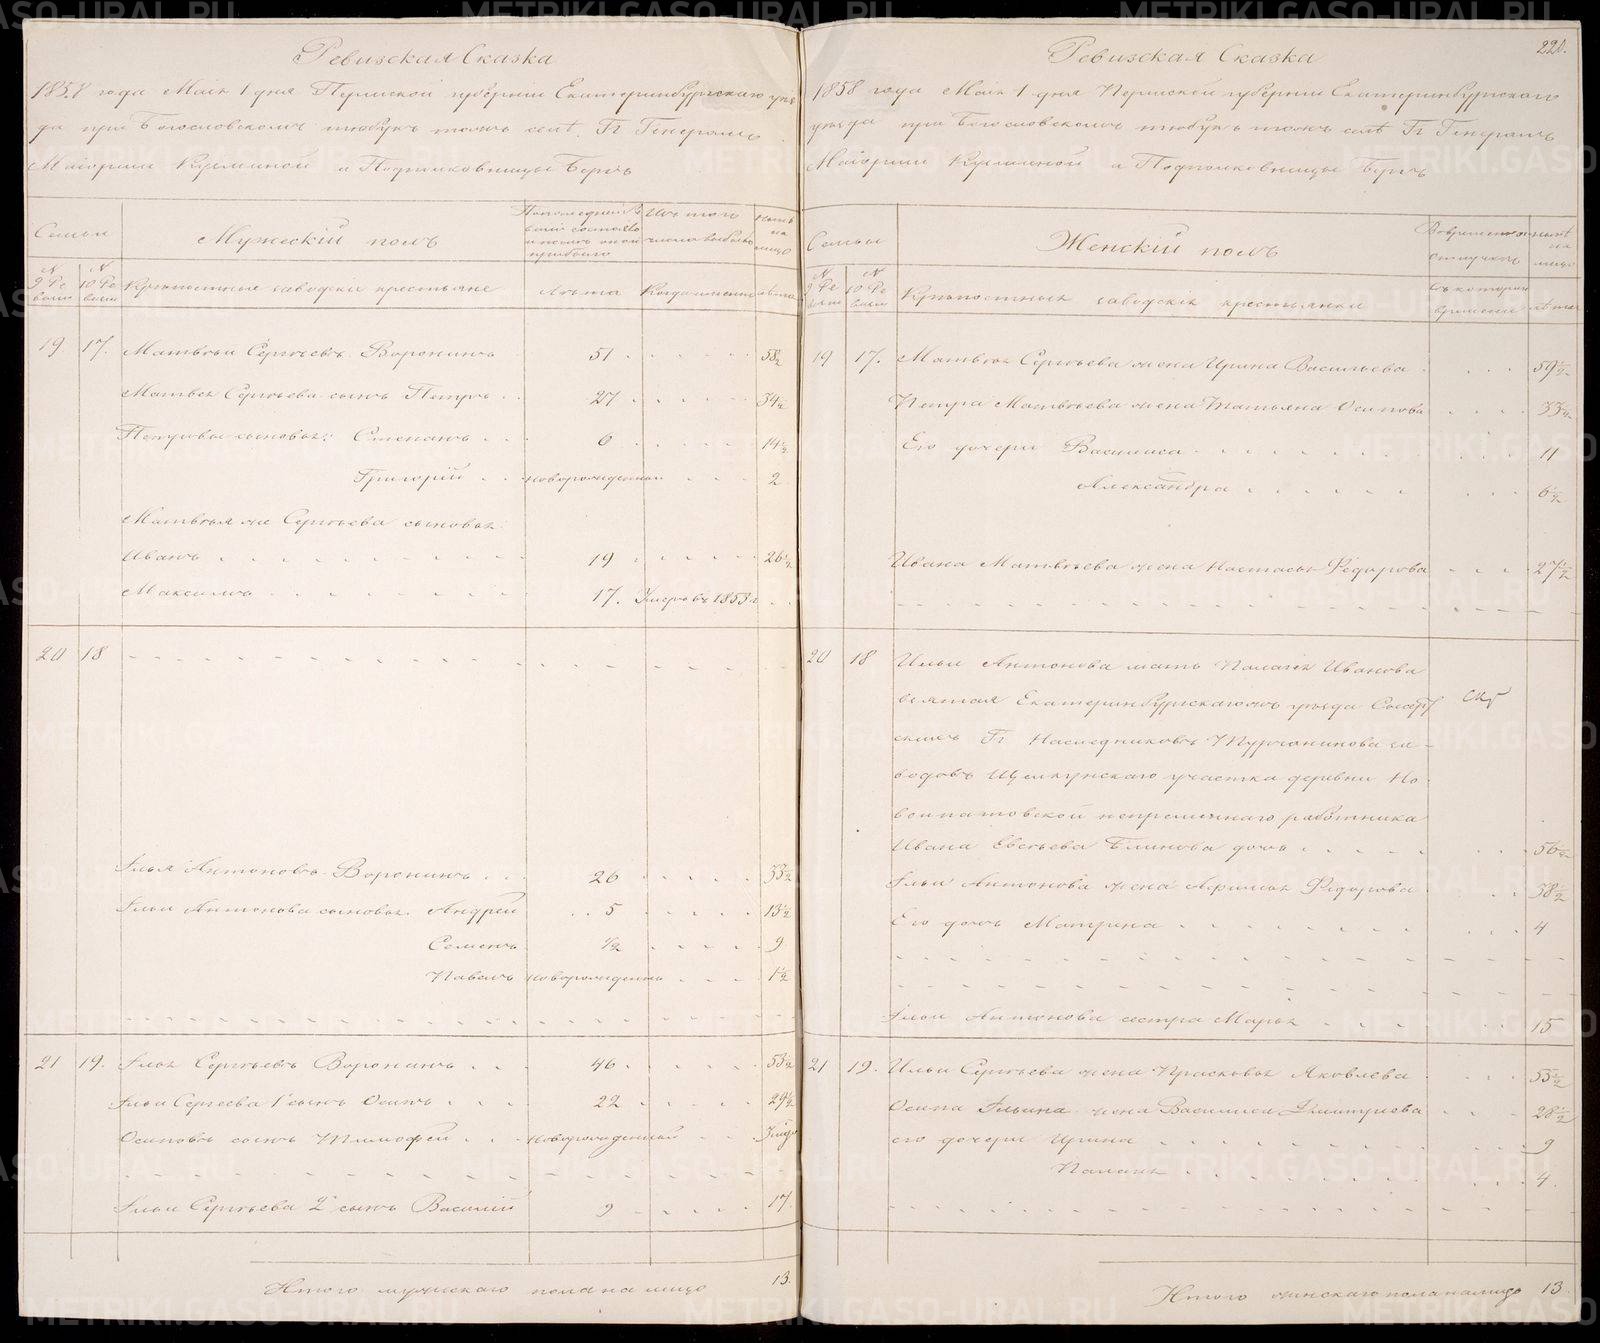 Ревизская Сказка
1858 года Маiя 1 дня Пермской губернiи Екатеринбургскаго уѣз
да при Богословскомъ селѣ Гг Генералъ
Маiорши Кузьминой и Подполковницы Бергъ
Семьи
Мужескiй полъ
По последней Ре
визiи состояло
и послѣ оной
прибыло
Изъ того
числа выбыло
Нынѣ
на
лицо
N 9 Ре
визiи
N 10 Ре
визiи
Крѣпостные заводскiе крестьяне
Лѣта
Когда именно
лѣта
19 17. Матвѣй Сергѣевъ Воронинъ 51 58½
Матвея Сергѣева сынъ Петръ 27 34½
Петровы сыновья: Степанъ 6 14½
Григорiй новорожденный 2
Матвѣя же Сергѣева сыновья
Иванъ 19 26½
Максимъ 17. Умеръ въ 1853 г
20 18
Илья Антоновъ Воронинъ 26 33½
Ильи Антонова сыновья Андрей 5 13½
Семенъ ½ 9
Павелъ новорожденный 1½
21 19. Илья Сергѣевъ Воронинъ 46 53½
Ильи Сергеева 1й сынъ Осипъ 22 29½
Осиповъ сынъ Тимофей новорожденный
Ильи Сергѣева 2й сынъ Василiй 9 17.
Итого мужескаго пола на лицо 13.
220.
Ревизская Сказка
1858 года Маiя 1 дня Пермской губернiи Екатеринбургскаго
уѣзда при Богословскомъ селѣ Гг Генералъ
Маiорши Кузьминой и Подполковницы Бергъ
Семьи
Женскiй полъ
Во временной
отлучкѣ
нынѣ
на
лицо
N 9 Ре
визiи
N 10 Ре
визiи
Крѣпостныя заводскiя крестьянки
Съ котораго
времени
лѣта
19 17. Матвѣя Сергѣева жена Ирина Васильева 59½
Петра Матвѣева жена Татьяна Осипова 33½
Его дочери Василиса 11
Александра 6½
Ивана Матвѣева жена Настасья Федорова 27½
20 18 Ильи Антонова мать Палагея Иванова
взятая Екатеринбургскагожъ уѣзда Сысерт
скихъ Гг Наследниковъ Турчанинова за-
водовъ Щелкунскаго участка деревни Но-
воипатовской непременнаго работника
Ивана Евсѣева Блинова дочь 56½
Ильи Антонова жена Афимья Федорова 38½
Его дочь Матрена 4
Ильи Антонова сестра Марья 15
21 19. Ильи Сергѣева жена Прасковья Яковлева 55½
Осипа Ильина жена Василиса Дмитрiева 28½
его дочери Ирина 9
Палагея 4.
Итого женскаго пола на лицо 13
METRIKI.GASO-URAL.RU